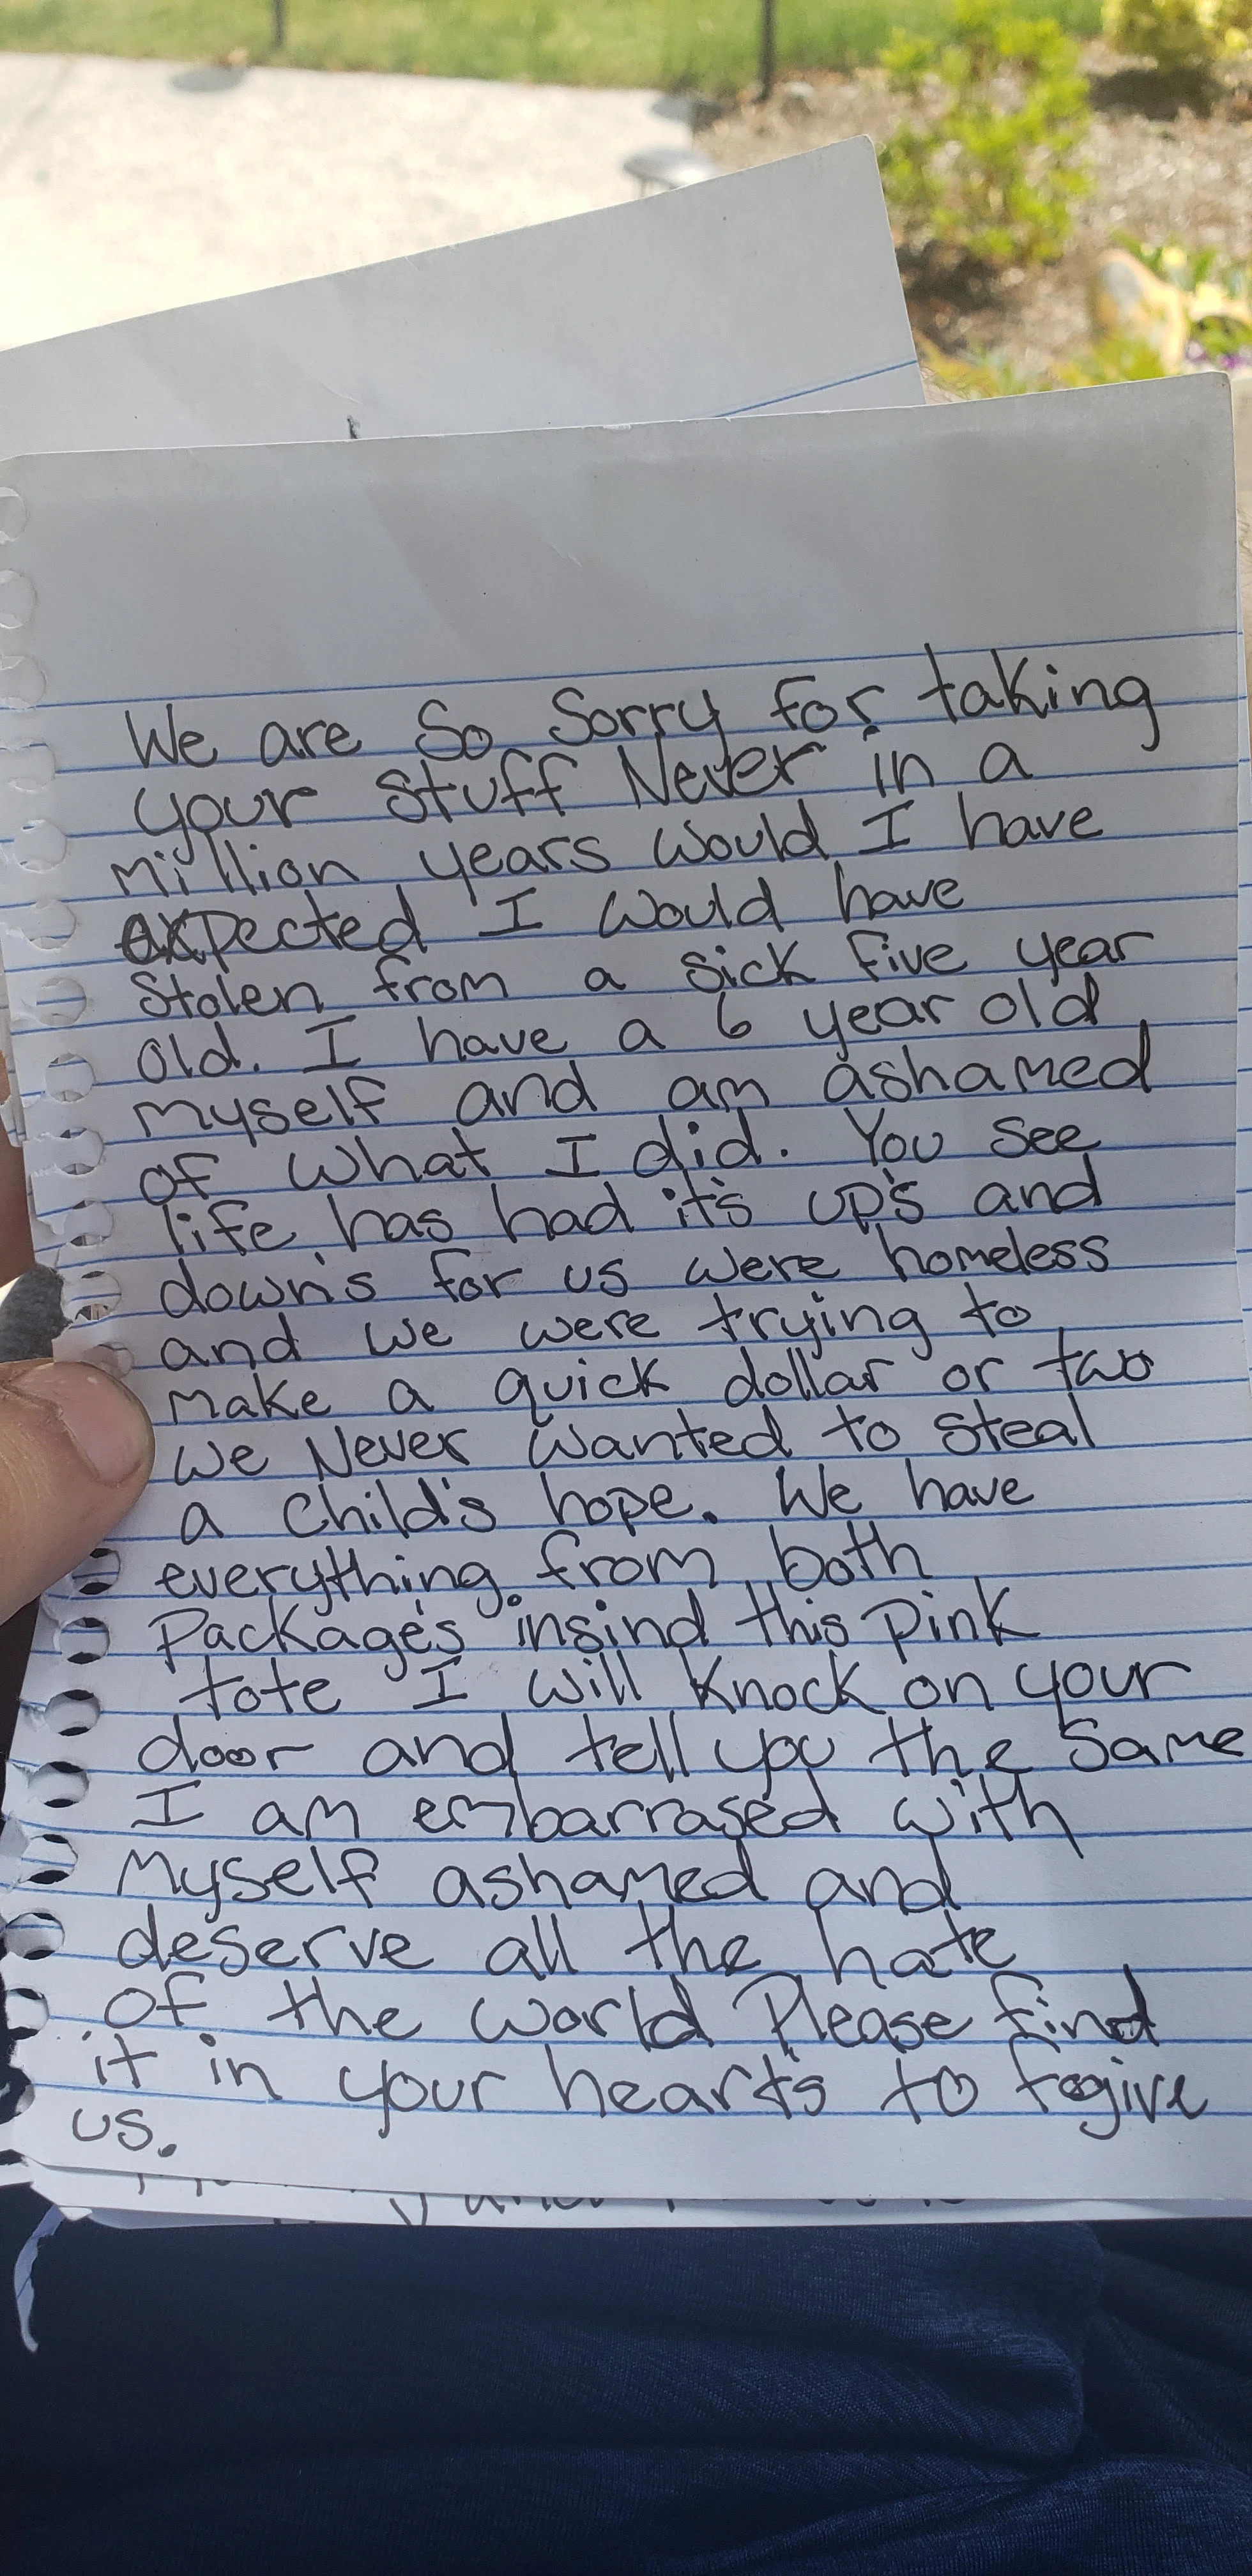 We are So Sorry for taking
your stuff Never in a
million years would I have
expected I would have
Stolen from a sick five year
old. I have a 6 year old
myself and am ashamed
of what I did. You see
life has had it's up's and
down's for us were homeless
and we were trying to
make a quick dollar or two
we Never wanted to steal
a child's hope. We have
everything from both
Package's insind this pink
tote I will knock on your
door and tell you the same
I am embarrased with
Myself ashamed and
deserve all the hate
of the world Please find
it in your heart's to fogive
us.